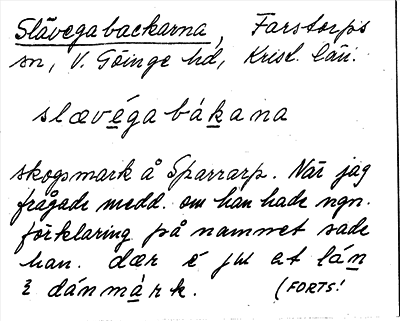 Slävegabackarna, Farstorps
sn, V. Göinge hd, Krist. län.
slævégabákana
skogsmark å Sparrarp. När jag
frågade medd. om han hade ngn.
förklaring på namnet sade
han. dær é ju at lán
i dánmárk. (FORTS!